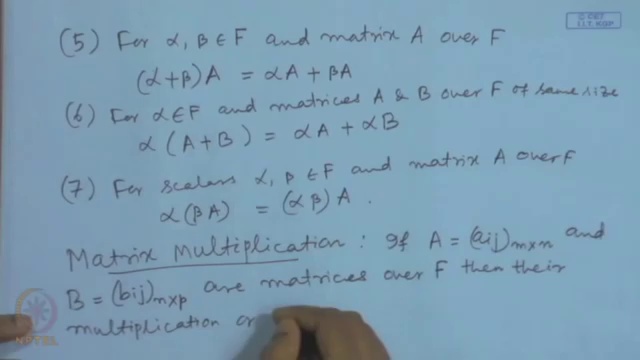 © CET
I.I.T. KGP
(5) For α, β ∈ F and matrix A over F
(α+β)A = αA + βA
(6) For α∈F and matrices A & B over F of same size
α (A+B) = αA + αB
(7) For scalars α, β ∈ F and matrix A over F
α(βA) = (αβ)A.
Matrix Multiplication : If A = (aij)m×n and
B = (bij)n×p are matrices over F then their
multiplication or
NPTEL